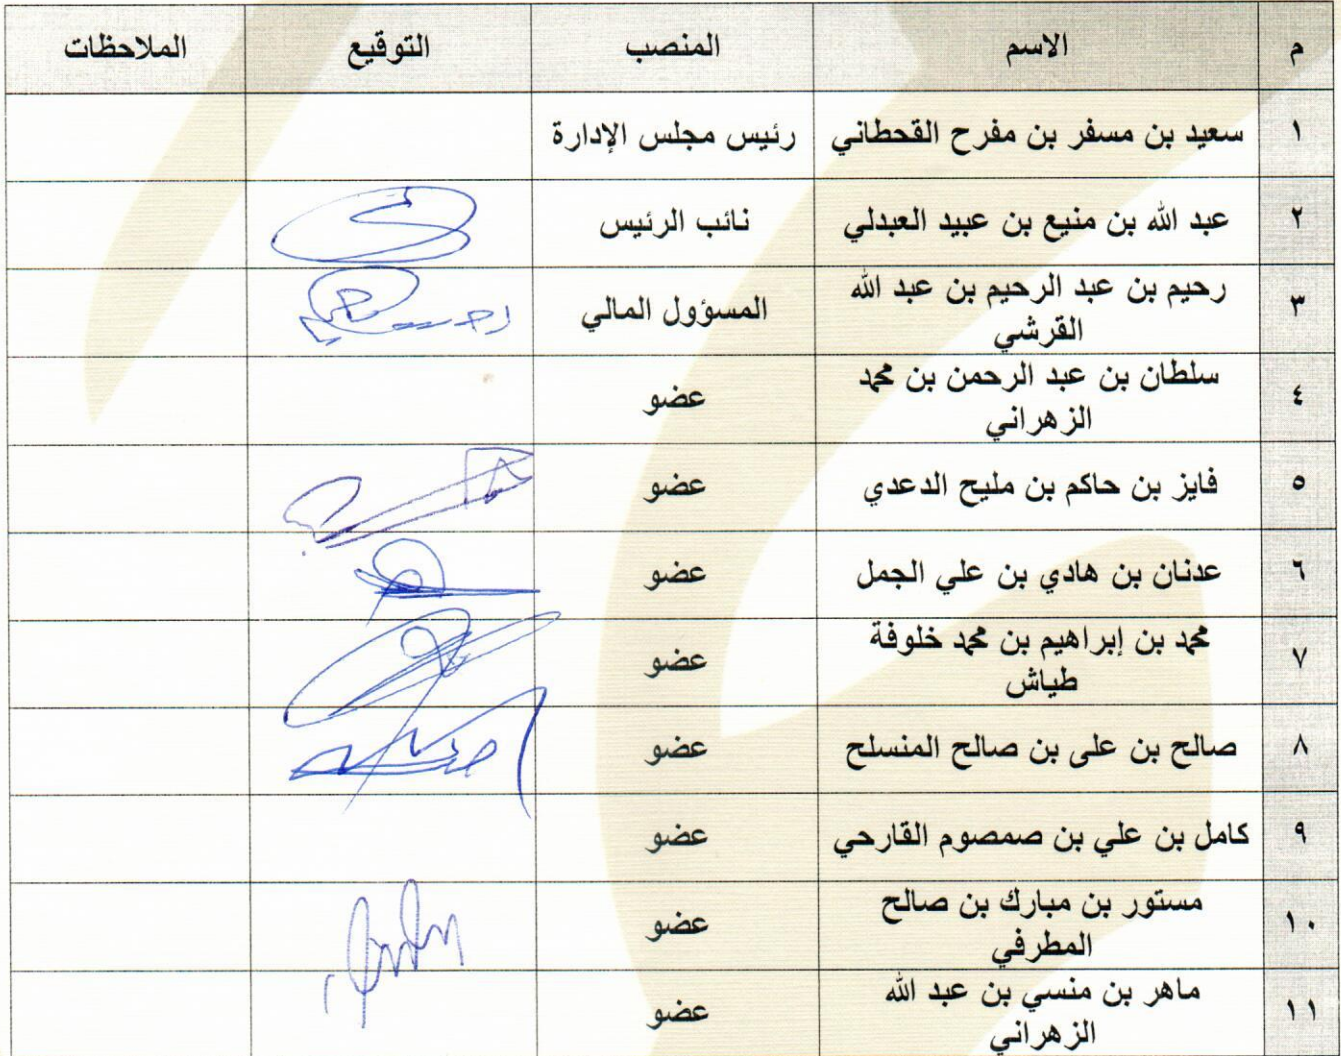 م الاسم المنصب التوقيع الملاحظات
١ سعيد بن مسفر بن مفرح القحطاني رئيس مجلس الإدارة
٢ عبد الله بن منيع بن عبيد العبدلي نائب الرئيس
٣ رحيم بن عبد الرحيم بن عبد الله القرشي المسؤول المالي
٤ سلطان بن عبد الرحمن بن محمد الزهراني عضو
٥ فايز بن حاكم بن مليح الدعدي عضو
٦ عدنان بن هادي بن علي الجمل عضو
٧ محمد بن إبراهيم بن محمد خلوفة طياش عضو
٨ صالح بن على بن صالح المنسلح عضو
٩ كامل بن علي بن صمصوم القارحي عضو
١٠ مستور بن مبارك بن صالح المطرفي عضو
١١ ماهر بن منسي بن عبد الله الزهراني عضو